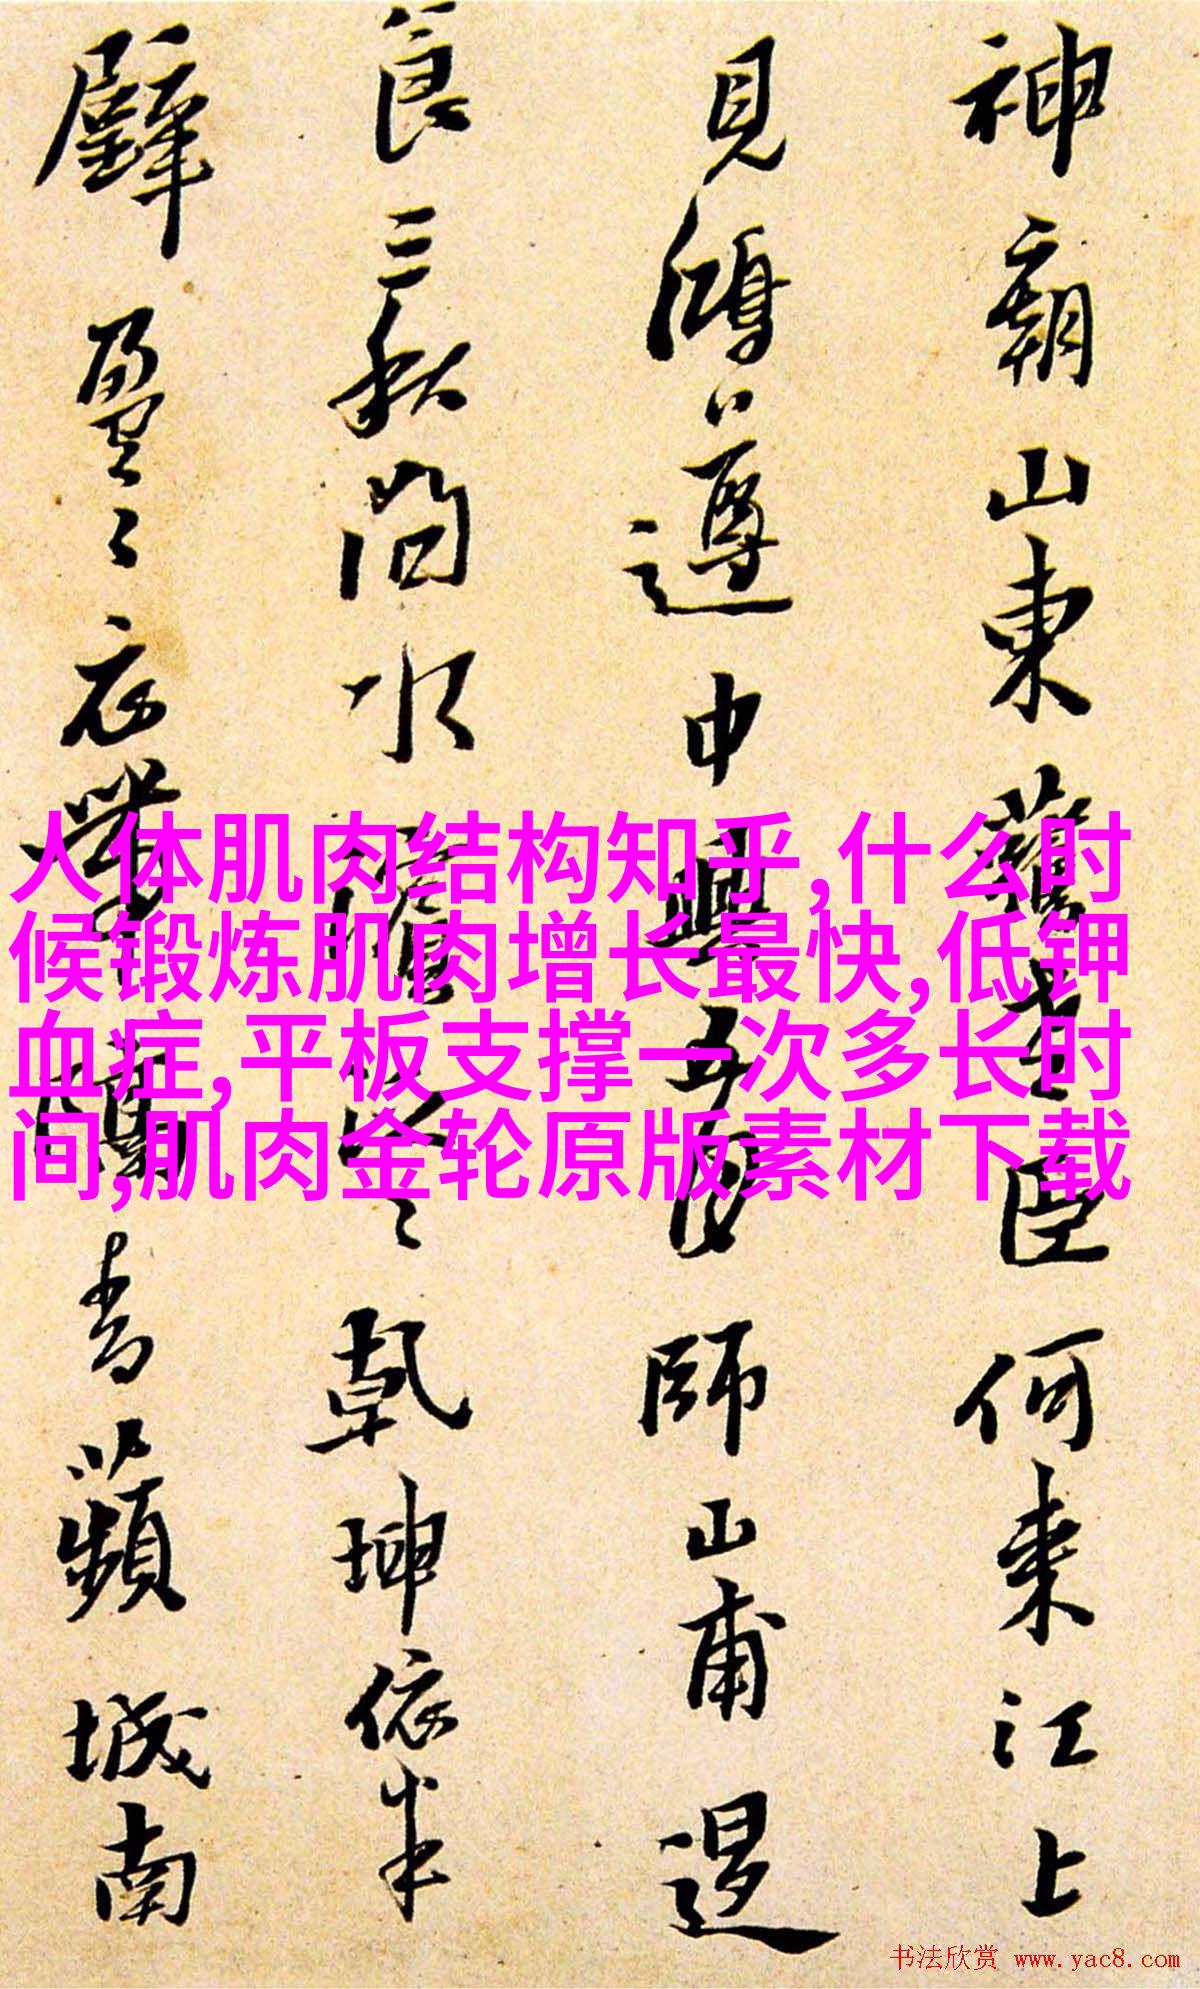 神廟山東舊老臣何来江上
見鴻遵中興五
師山甫遐
食三秋間水
乾坤依半
璧盈々衣帶
青蘋城南
人体肌肉结构知乎,什么时
候锻炼肌肉增长最快,低钾
血症,平板支撑一次多长时
间,肌肉金轮原版素材下载
书法欣赏 www.yac8.com